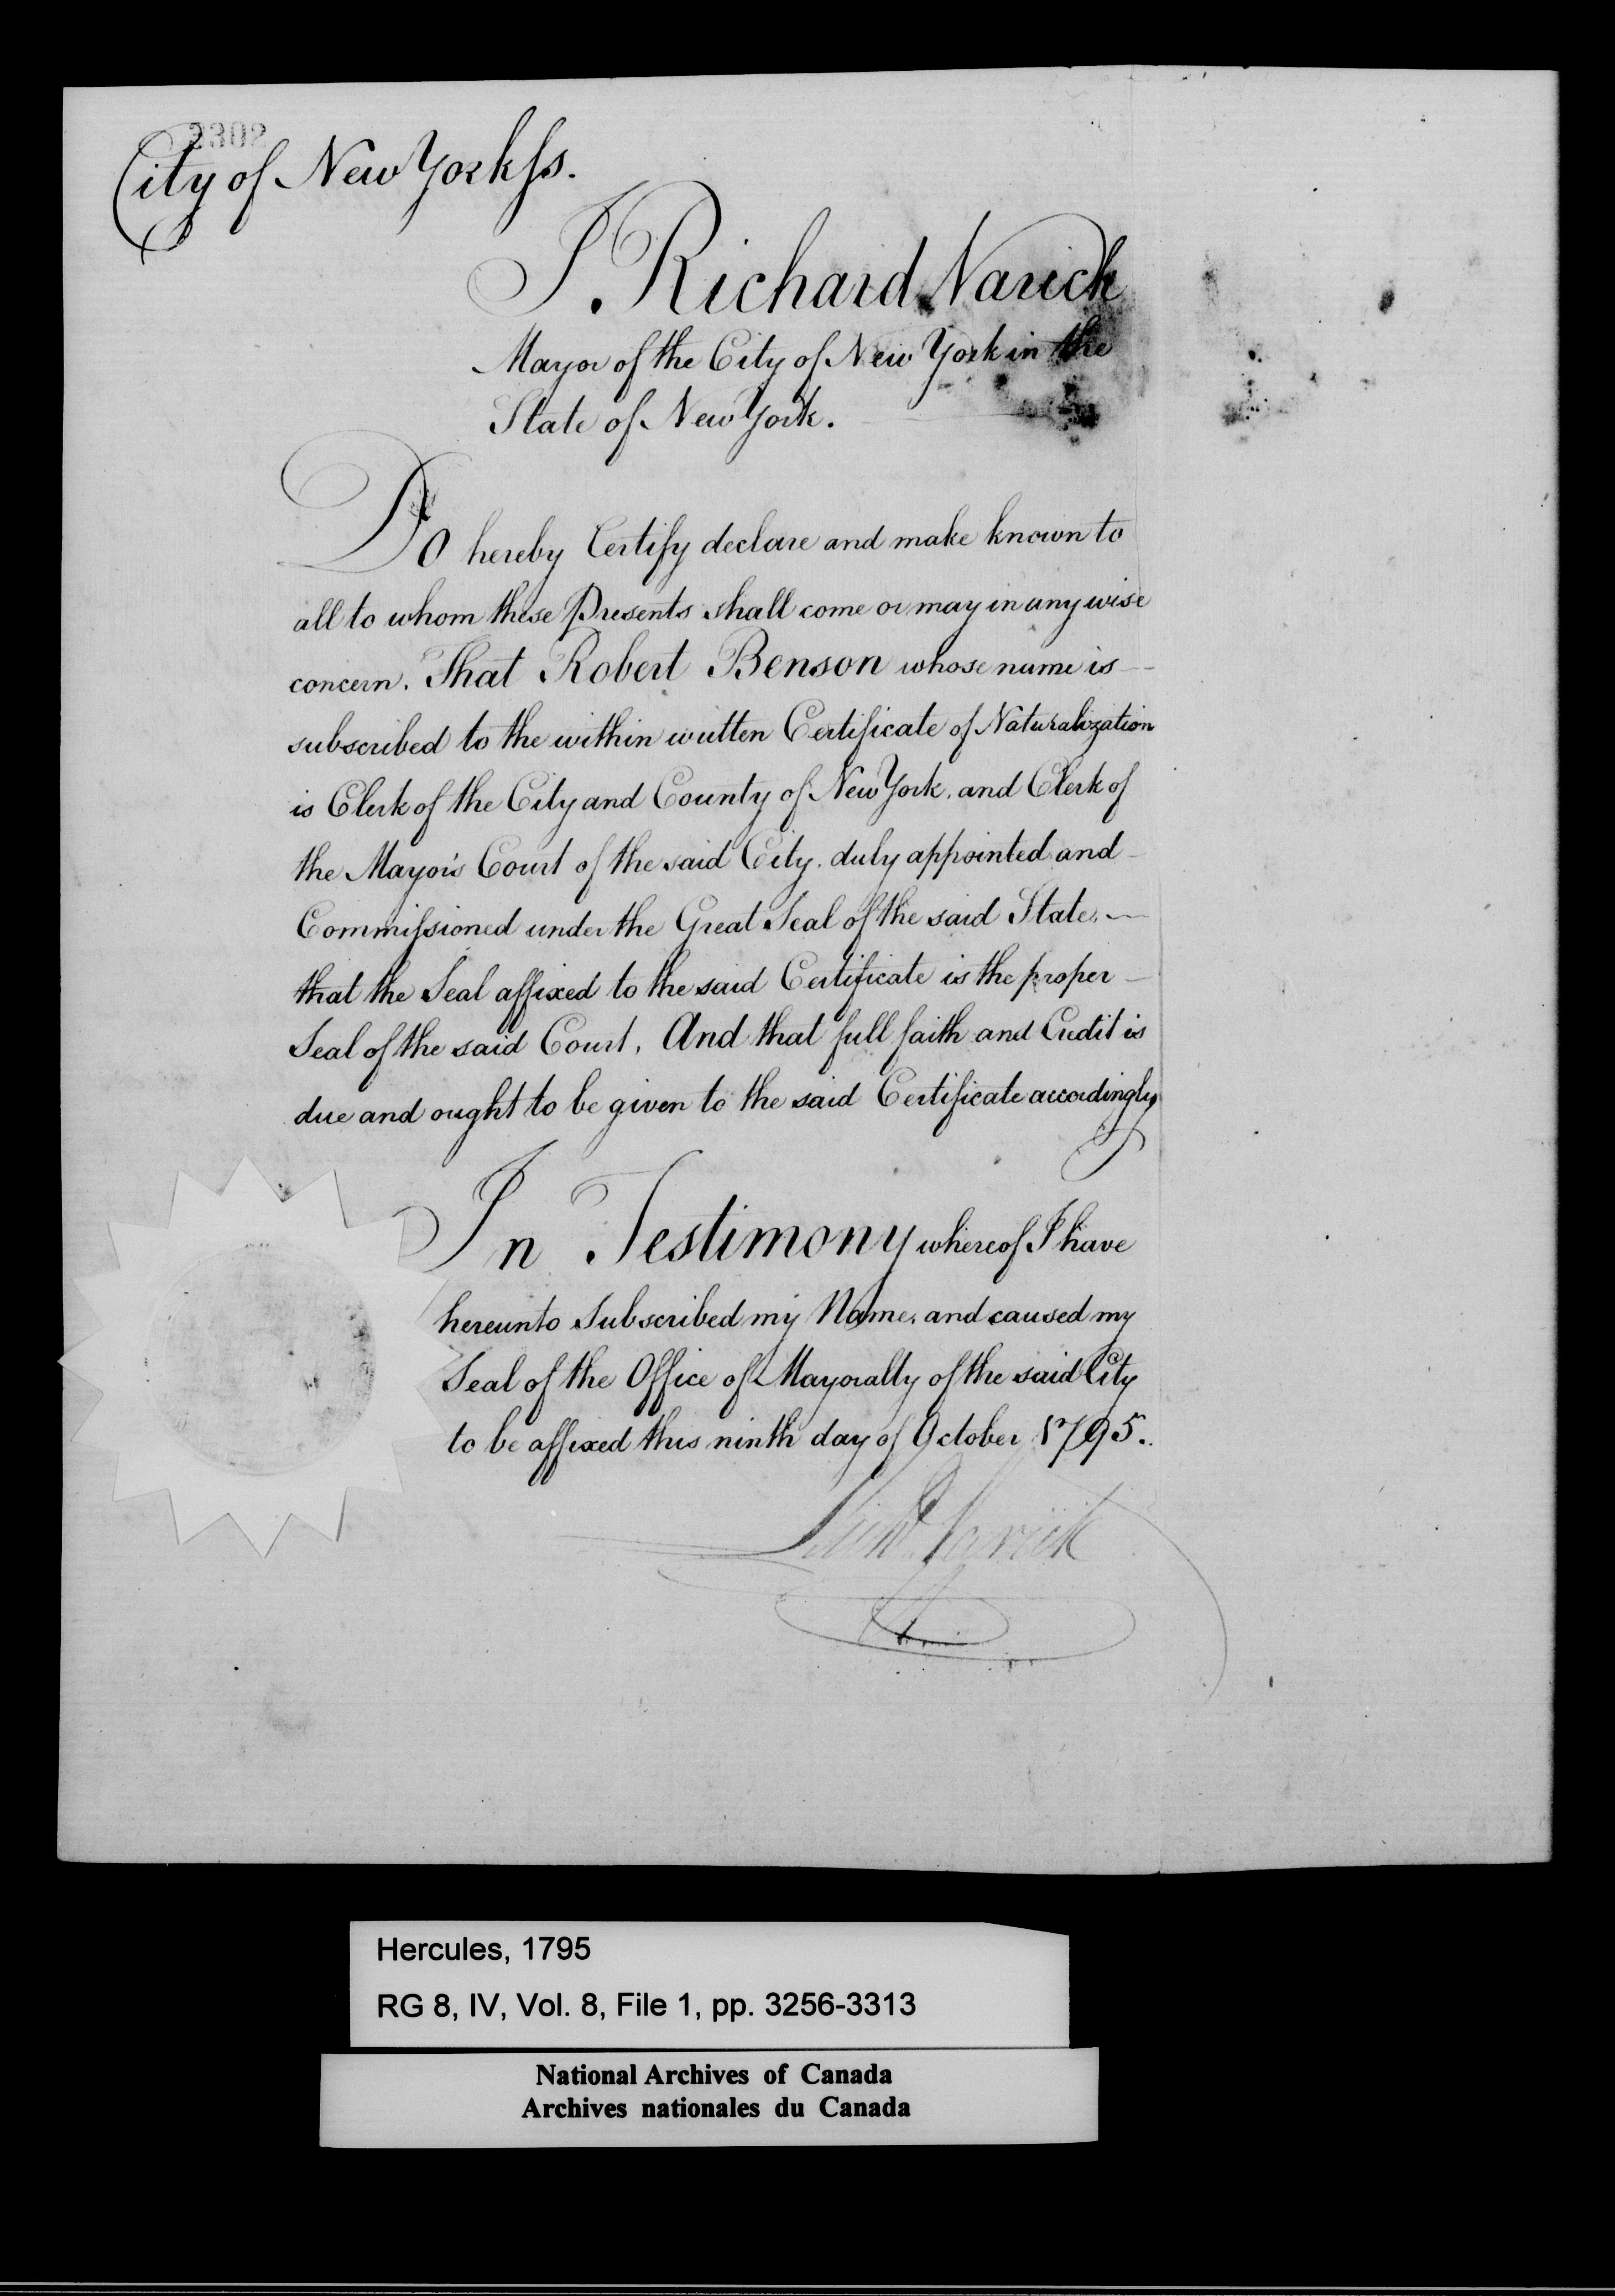 City of New York ss.
I. Richard Varick
Mayor of the City of New York in the
State of New York.
Do hereby Certify declare and make known to
all to whom these Presents shall come or may in any wise
concern. That Robert Benson whose name is
subscribed to the within written Certificate of Naturalization
is Clerk of the City and County of New York. and Clerk of
the Mayor's Court of the said City. duly appointed and
Commissioned under the Great Seal of the said State.
that the Seal affixed to the said Certificate is the proper
Seal of the said Court. And that full faith and Credit is
due and ought to be given to the said Certificate accordingly
In Testimony whereof I have
hereunto Subscribed my Name. and caused my
Seal of the Office of Mayoralty of the said City
to be affixed this ninth day of October 1795.
Richd. Varick
Hercules, 1795
RG 8, IV, Vol. 8, File 1, pp. 3256-3313
National Archives of Canada
Archives nationales du Canada